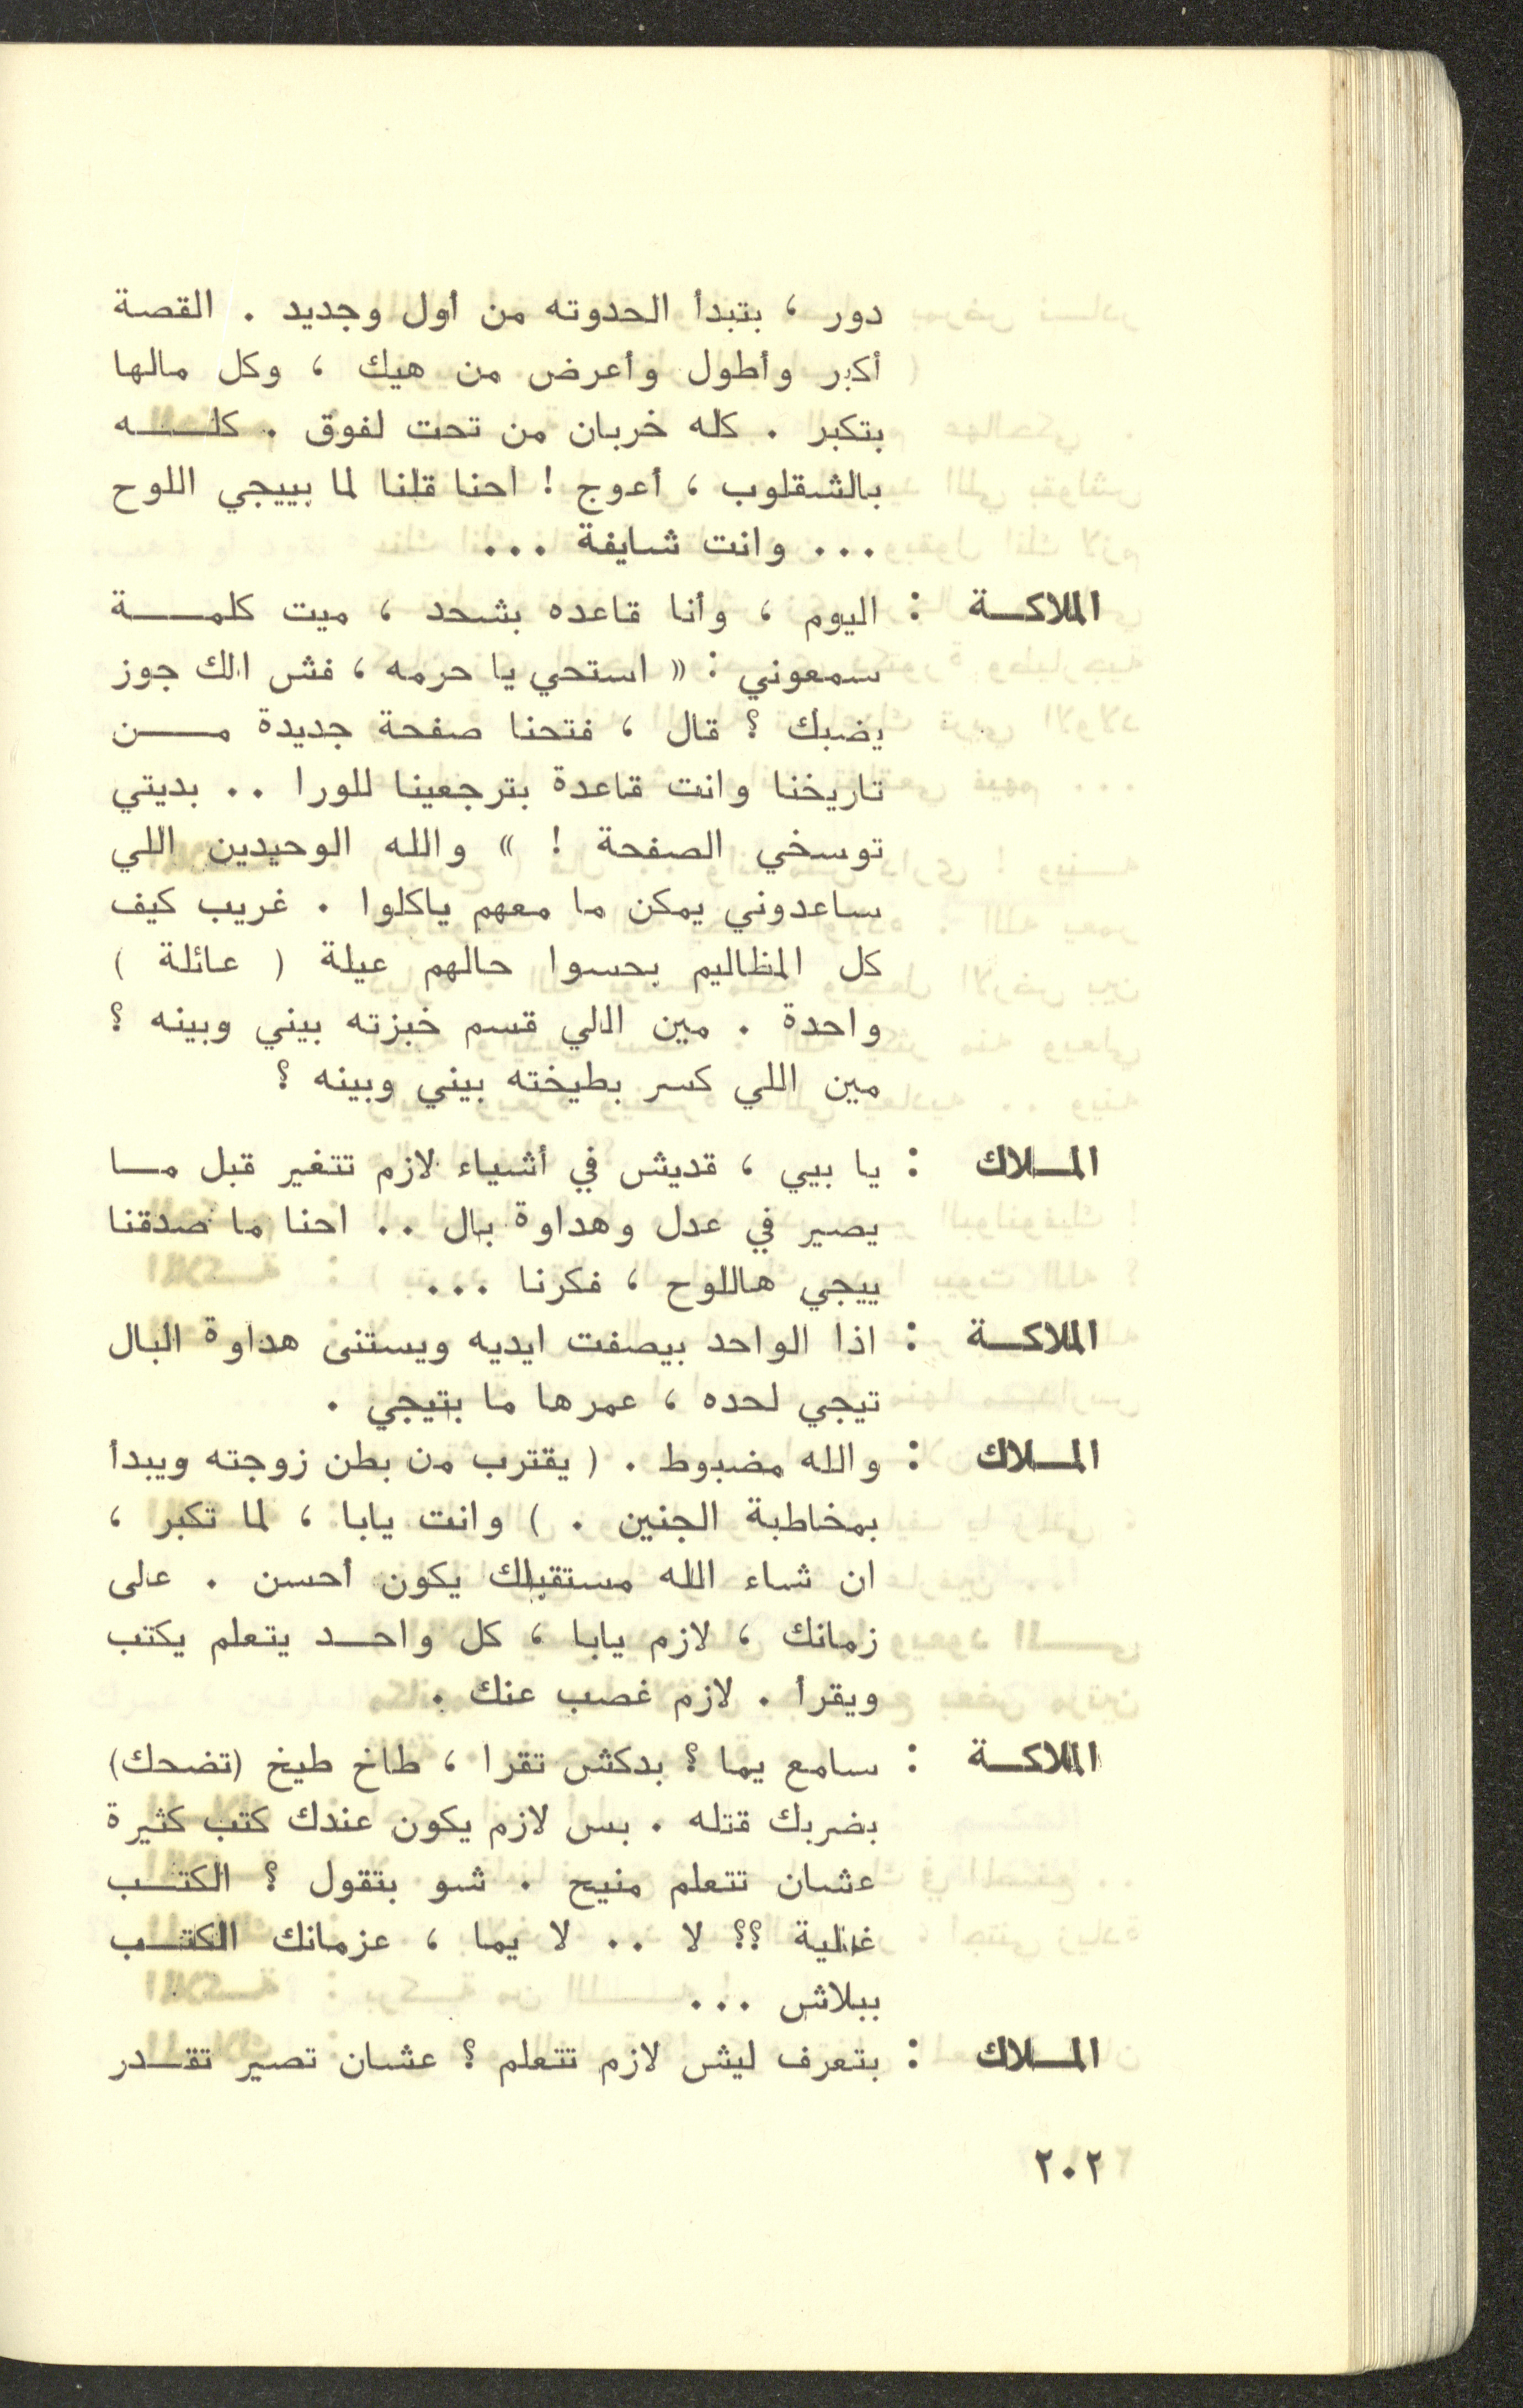 دور ، بتبدأ الحدوته من أول وجديد . القصة
أكبر وأطول وأعرض من هيك ، وكل مالها
بتكبر . كله خربان من تحت لفوق . كلـــه
بالشقلوب ، أعوج ! احنا قلنا لما بييجي اللوح
... وانت شايفة ...
الملاكــة : اليوم ، وأنا قاعده بشحد ، ميت كلمــة
سمعوني : « استحي يا حرمه ، فش الك جوز
يضبك ؟ قال ، فتحنا صفحة جديدة مــن
تاريخنا وانت قاعدة بترجعينا للورا .. بديتي
توسخي الصفحة ! » والله الوحيدين اللي
ساعدوني يمكن ما معهم ياكلوا . غريب كيف
كل المظاليم بحسوا حالهم عيلة ( عائلة )
واحدة . مين اللي قسم خبزته بيني وبينه ؟
مين اللي كسر بطيخته بيني وبينه ؟
المــلاك : يا بيي ، قديش في أشياء لازم تتغير قبل مــا
يصير في عدل وهداوة بال .. احنا ما صدقنا
ييجي هاللوح ، فكرنا ...
الملاكــة : اذا الواحد بيصفت ايديه ويستنى هداوة البال
تيجي لحده ، عمرها ما بتيجي .
المــلاك : والله مضبوط . ( يقترب من بطن زوجته ويبدأ
بمخاطبة الجنين . ) وانت يابا ، لما تكبر ،
ان شاء الله مستقبلك يكون أحسن . على
زمانك ، لازم يابا ، كل واحــد يتعلم يكتب
ويقرأ . لازم غصب عنك .
الملاكــة : سامع يما ؟ بدكش تقرا ، طاخ طيخ (تضحك)
بضربك قتله . بس لازم يكون عندك كتب كثيرة
عشان تتعلم منيح . شو بتقول ؟ الكتــب
غالية ؟؟ لا .. لا يما ، عزمانك الكتــب
ببلاش ...
المــلاك : بتعرف ليش لازم تتعلم ؟ عشان تصير تقــدر
٢٠٢